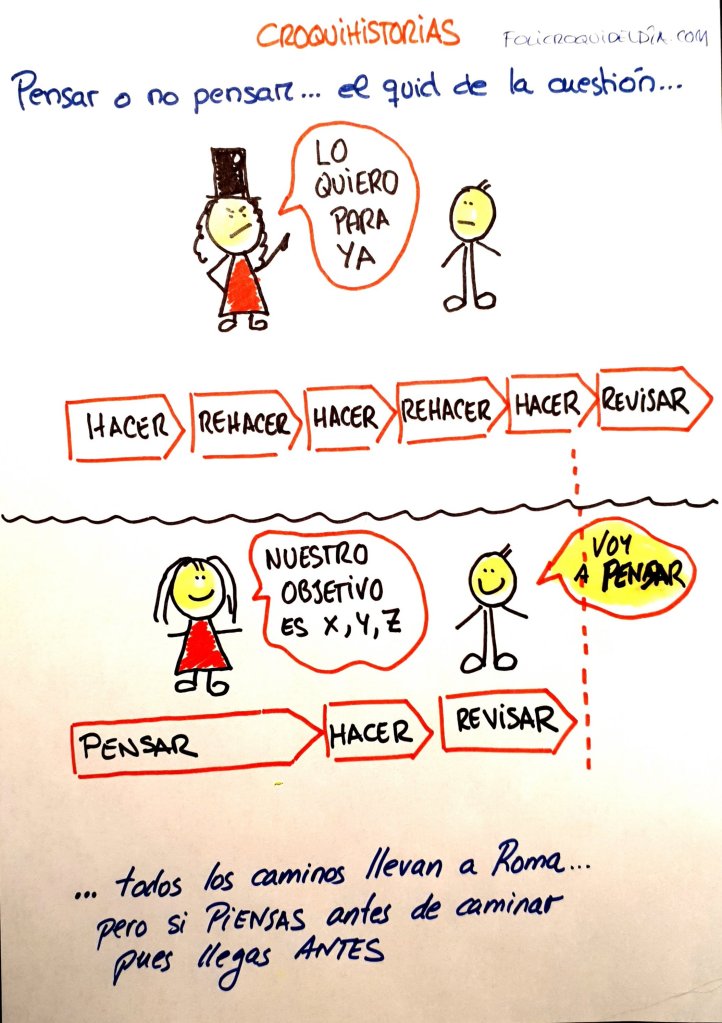 CROQUIHISTORIAS
FOLICROQUIDELDÍA.COM
Pensar o no pensar... el quid de la cuestión...
LO
QUIERO
PARA
YA
HACER REHACER HACER REHACER HACER REVISAR
NUESTRO
OBJETIVO
ES X, Y, Z
VOY
A PENSAR
PENSAR HACER REVISAR
... todos los caminos llevan a Roma...
pero si PIENSAS antes de caminar
pues llegas ANTES